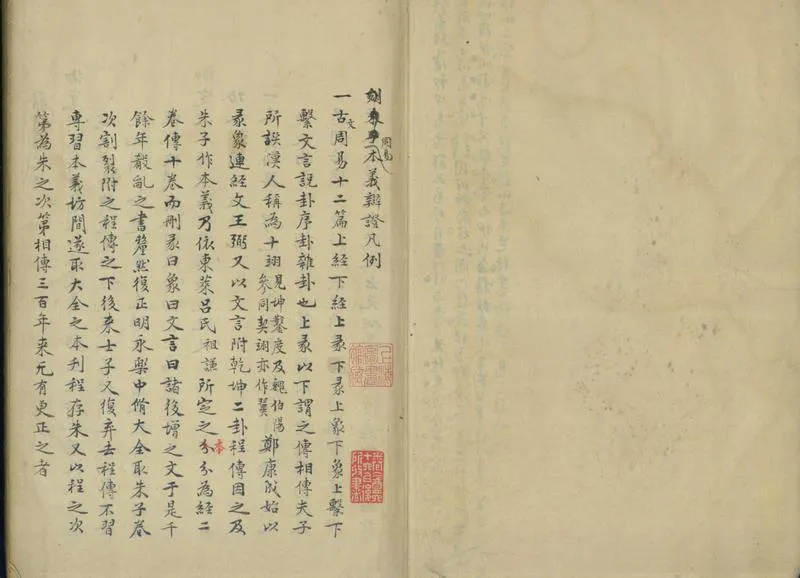 刻朱子周易本義辯證凡例
一古文周易十二篇上經下經上彖下彖上象下象上繫下
繫文言說卦序卦雜卦也上彖以下謂之傳相傳夫子
所譔漢人稱為十翊見坤鑿度及魏伯陽參同契翊亦作翼鄭康成始以
彖象連經文王弼又以文言附乾坤二卦程傳因之及
朱子作本義乃依東萊呂氏祖謙所定之本分為經二
卷傳十卷而刪彖曰象曰文言曰諸後增之文于是千
餘年散亂之書釐然復正明永樂中脩大全取朱子卷
次割裂附之程傳之下後來士子又復弃去程傳不習
專習本義坊間遂取大全之本刊程存朱又以程之次
第為朱之次第相傳三百年來无有更正之者